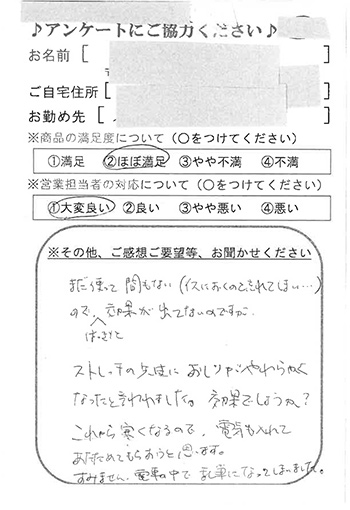 ♪アンケートにご協力ください♪
お名前 [ ]
ご自宅住所 [ ]
お勤め先 [ ]
※商品の満足度について（○をつけてください）
①満足 ②ほぼ満足 ③やや不満 ④不満
※営業担当者の対応について（○をつけてください）
①大変良い ②良い ③やや悪い ④悪い
※その他、ご感想ご要望等、お聞かせください
まだ使って間もない（イスにおくのを忘れてしまい…）
ので、効果が出てないのですが、
はっきりと
ストレッチの先生に おしりがやわらかく
なったと言われました。効果でしょうか？
これから寒くなるので、電気も入れて
あたためてもらおうと思います。
すみません、電車の中で乱筆になってしまいました。